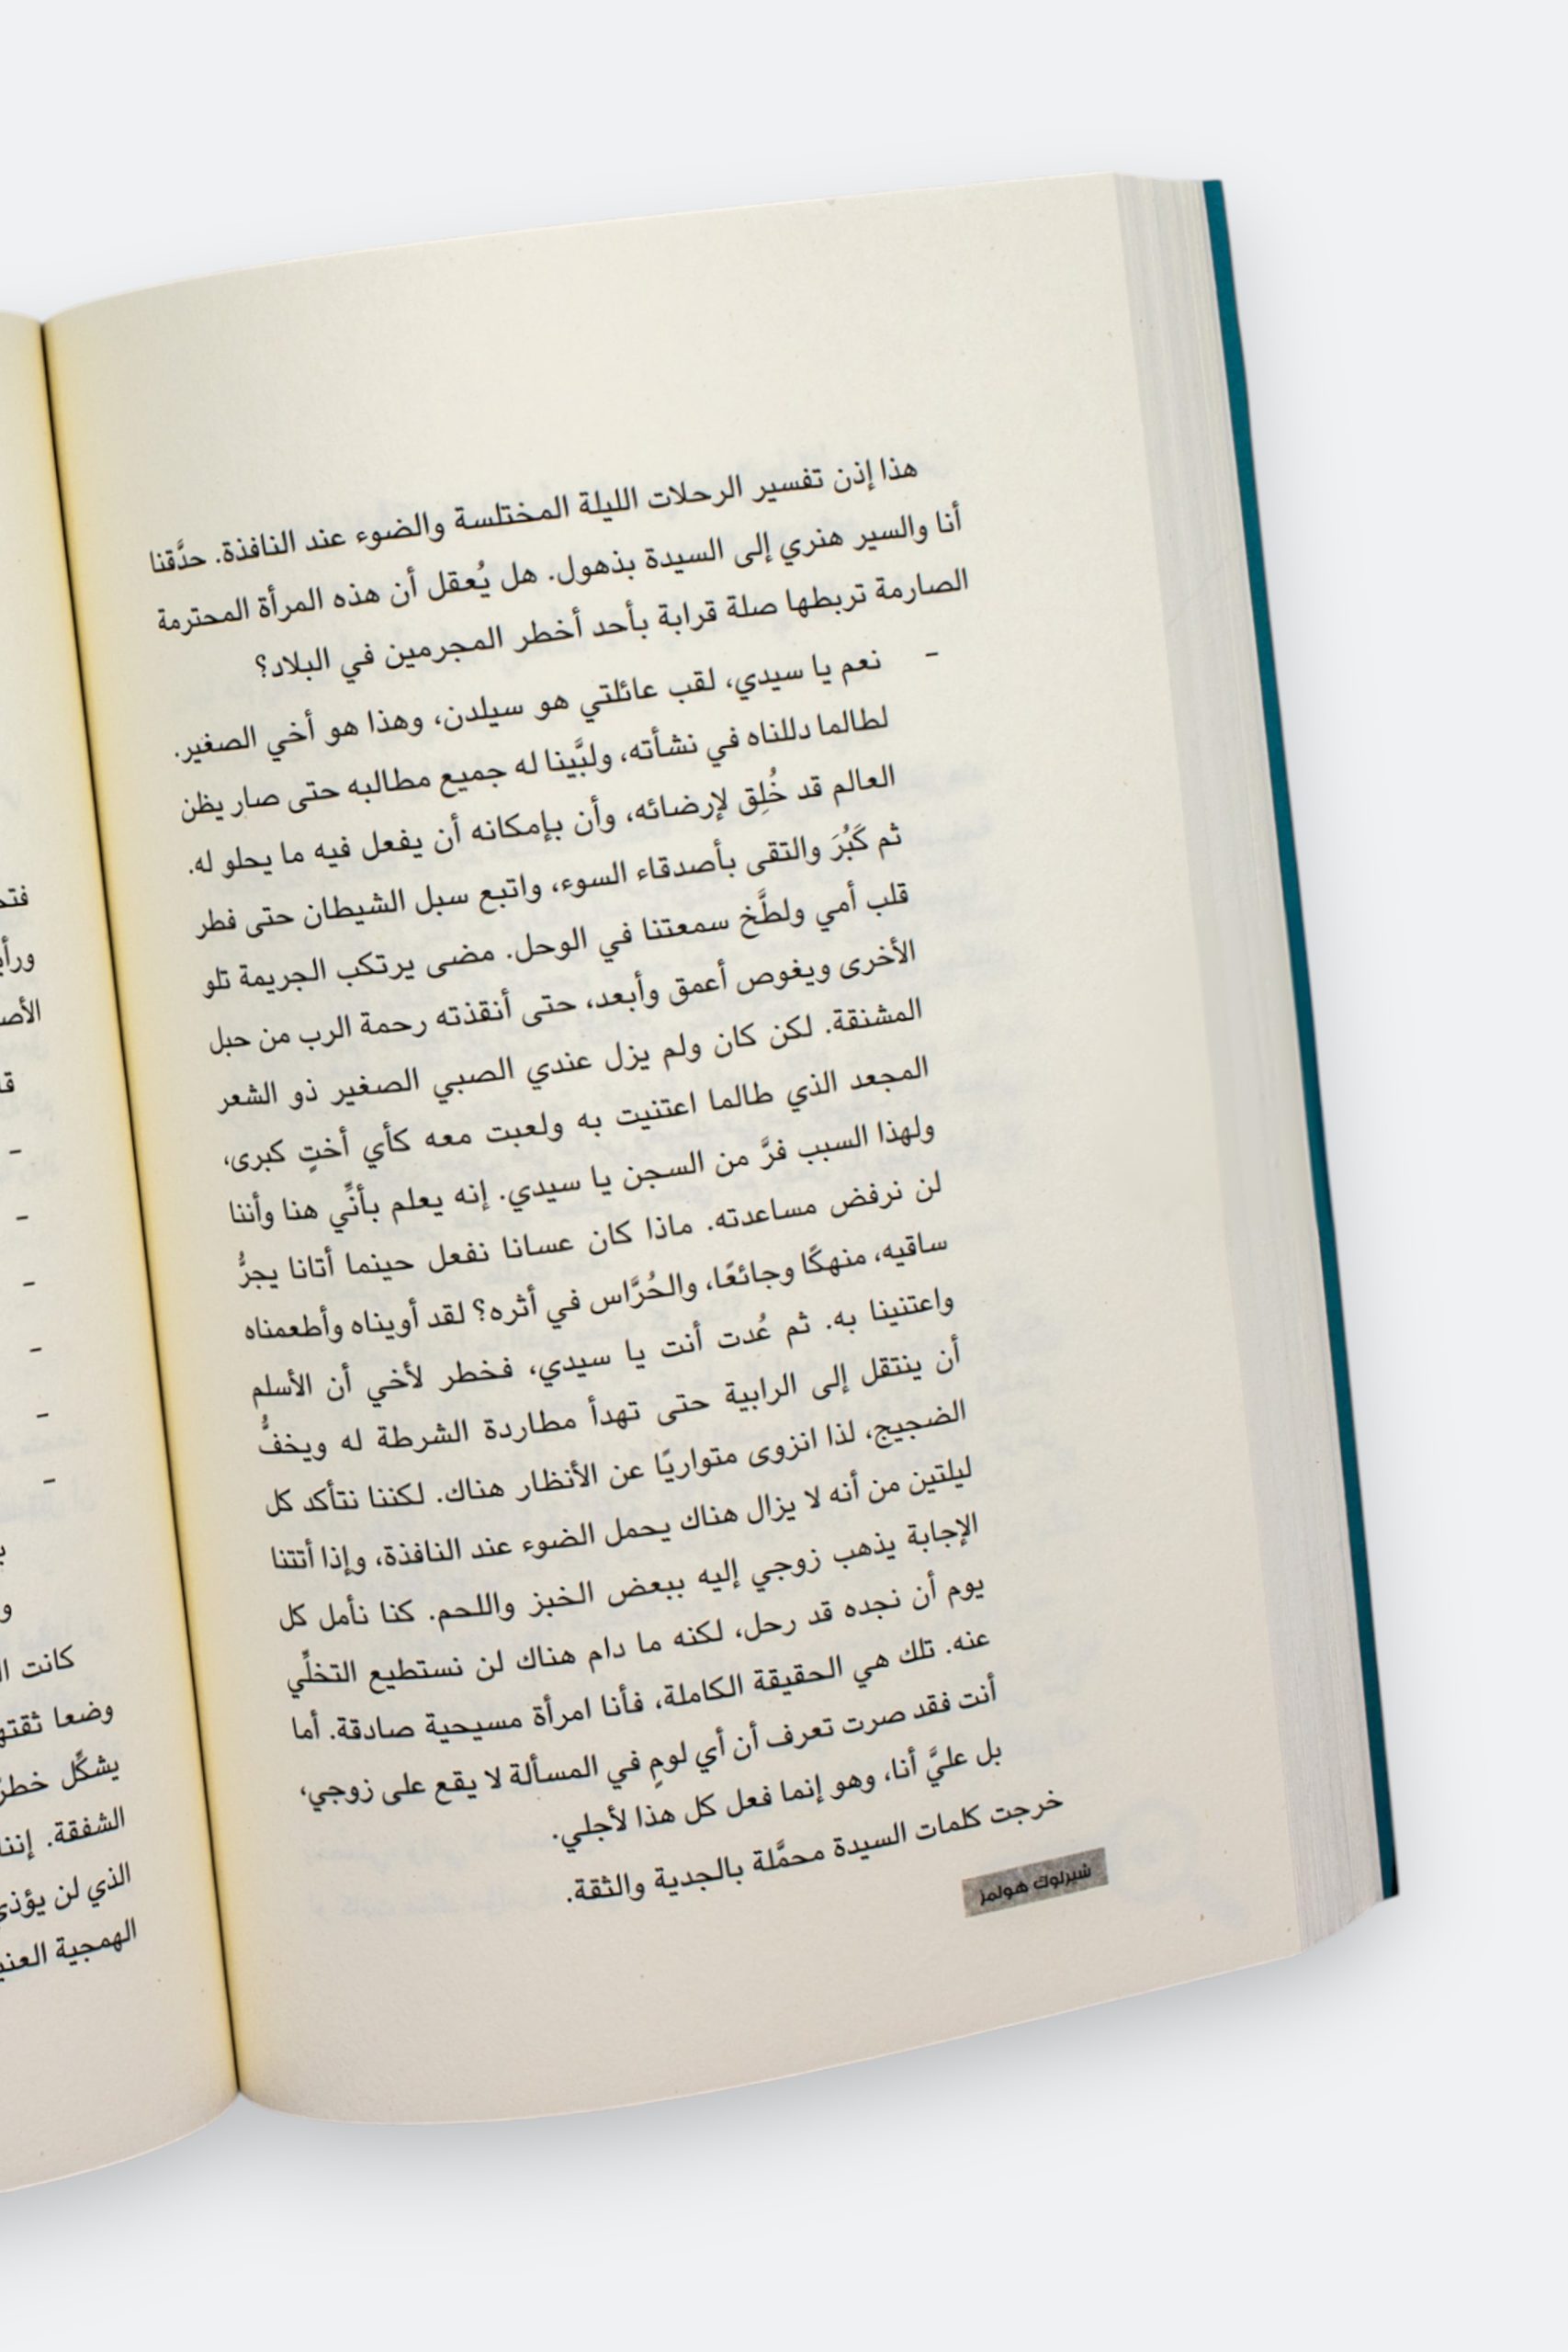 هذا إذن تفسير الرحلات الليلة المختلسة والضوء عند النافذة. حدَّقنا
أنا والسير هنري إلى السيدة بذهول. هل يُعقل أن هذه المرأة المحترمة
الصارمة تربطها صلة قرابة بأحد أخطر المجرمين في البلاد؟
- نعم يا سيدي، لقب عائلتي هو سيلدن، وهذا هو أخي الصغير.
لطالما دللناه في نشأته، ولبَّينا له جميع مطالبه حتى صار يظن
العالم قد خُلِق لإرضائه، وأن بإمكانه أن يفعل فيه ما يحلو له.
ثم كَبُرَ والتقى بأصدقاء السوء، واتبع سبل الشيطان حتى فطر
قلب أمي ولطَّخ سمعتنا في الوحل. مضى يرتكب الجريمة تلو
الأخرى ويغوص أعمق وأبعد، حتى أنقذته رحمة الرب من حبل
المشنقة. لكن كان ولم يزل عندي الصبي الصغير ذو الشعر
المجعد الذي طالما اعتنيت به ولعبت معه كأي أختٍ كبرى،
ولهذا السبب فرَّ من السجن يا سيدي. إنه يعلم بأنِّي هنا وأننا
لن نرفض مساعدته. ماذا كان عسانا نفعل حينما أتانا يجرُّ
ساقيه، منهكًا وجائعًا، والحُرَّاس في أثره؟ لقد أويناه وأطعمناه
واعتنينا به. ثم عُدت أنت يا سيدي، فخطر لأخي أن الأسلم
أن ينتقل إلى الرابية حتى تهدأ مطاردة الشرطة له ويخفُّ
الضجيج، لذا انزوى متواريًا عن الأنظار هناك. لكننا نتأكد كل
ليلتين من أنه لا يزال هناك يحمل الضوء عند النافذة، وإذا أتتنا
الإجابة يذهب زوجي إليه ببعض الخبز واللحم. كنا نأمل كل
يوم أن نجده قد رحل، لكنه ما دام هناك لن نستطيع التخلِّي
عنه. تلك هي الحقيقة الكاملة، فأنا امرأة مسيحية صادقة. أما
أنت فقد صرت تعرف أن أي لومٍ في المسألة لا يقع على زوجي،
بل عليَّ أنا، وهو إنما فعل كل هذا لأجلي.
خرجت كلمات السيدة محمَّلة بالجدية والثقة.
شيرلوك هولمز
-
-
-
-
-
-
كانت
وضعا
يشكِّل
الشفقة. إننا
الذي لن يؤذي
الهمجية